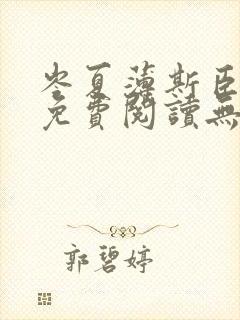 岑夏薄斯臣
免費閱讀無
郭碧婷